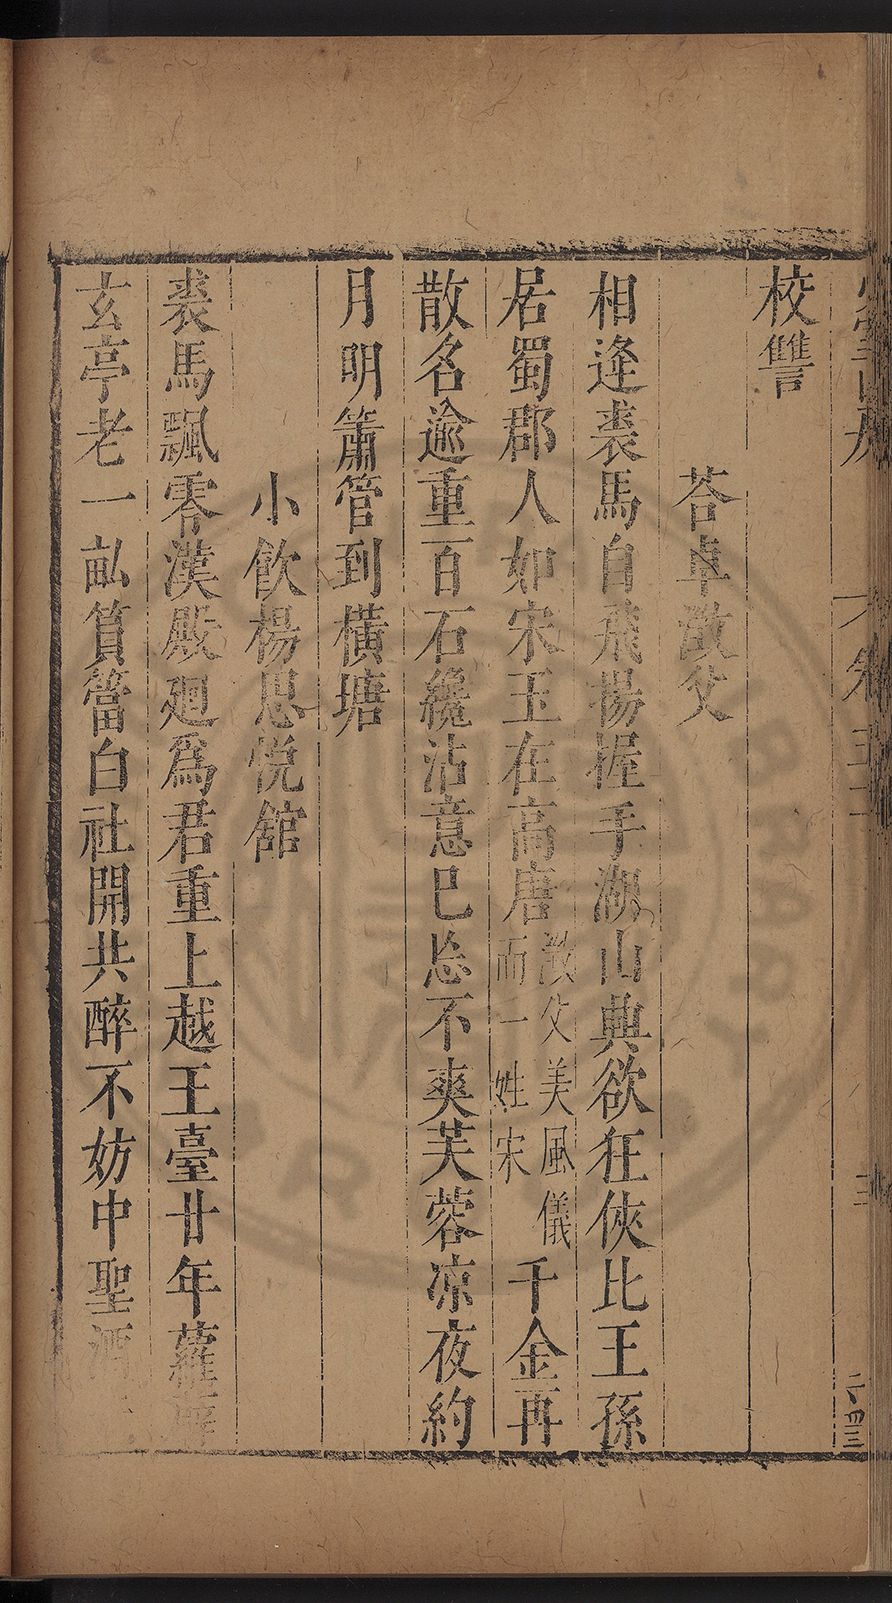 校讐
荅卓澂父
相逢裘馬自飛揚握手湖山興欲狂俠比王孫
居蜀郡人如宋玉在高唐澂父美風儀而一姓宋千金再
散名逾重百石纔沾意已忘不爽芙蓉凉夜約
月明簫管到橫塘
小飲楊思悅舘
裘馬飄零漢殿廻爲君重上越王臺廿年蘿薜
玄亭老一畝篔簹白社開共醉不妨中聖酒
卷五十
六四三